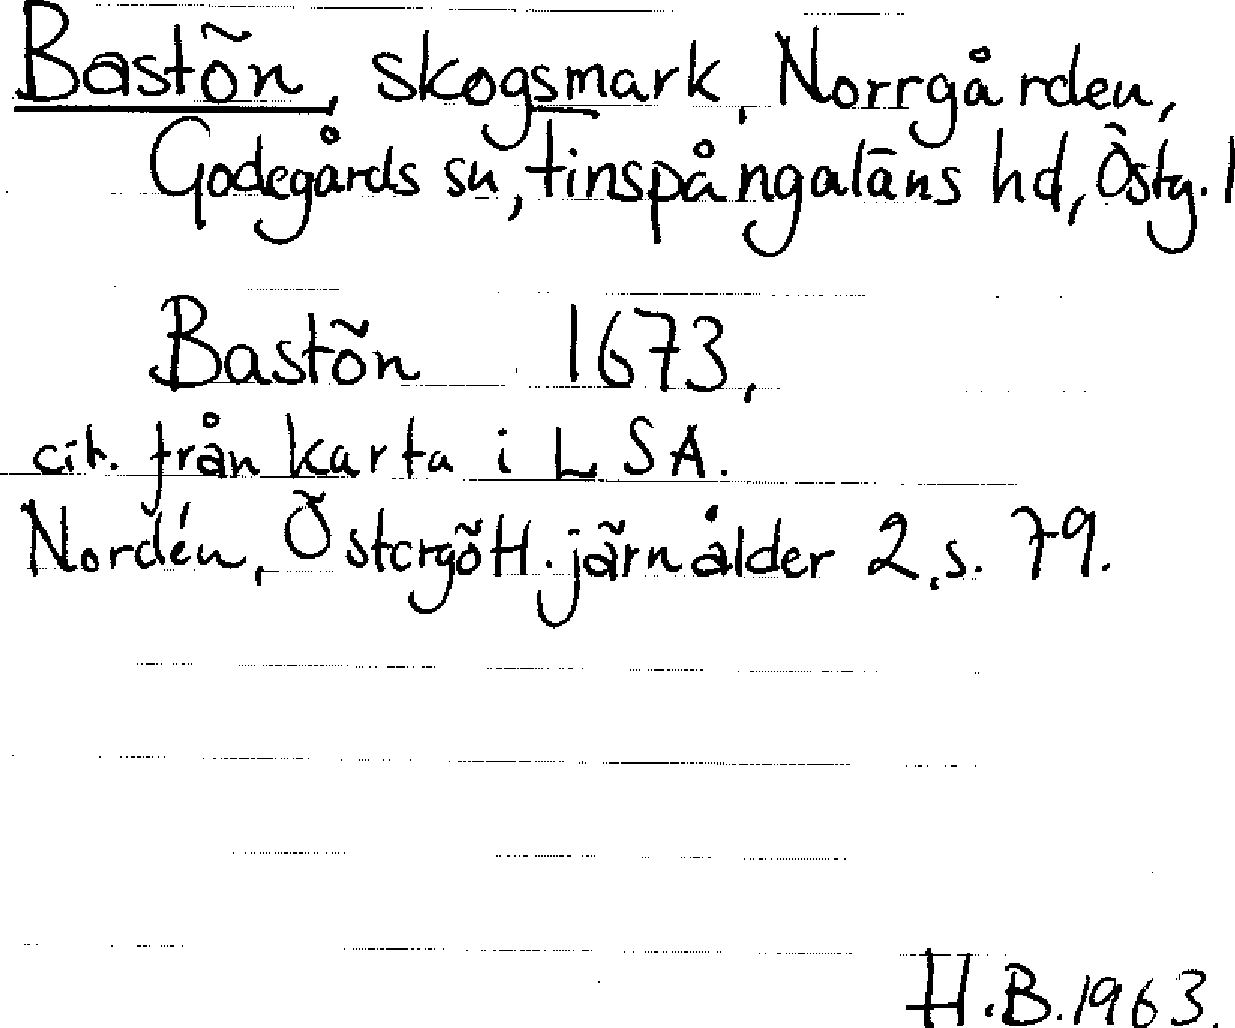 Bastön, skogsmark, Norrgården,
Godegårds sn, Finspångaläns hd, Östg. l
Bastön 1673,
cit. från karta i LSA.
Nordén, Östergötl. järnålder 2, s. 79.
H.B. 1963.